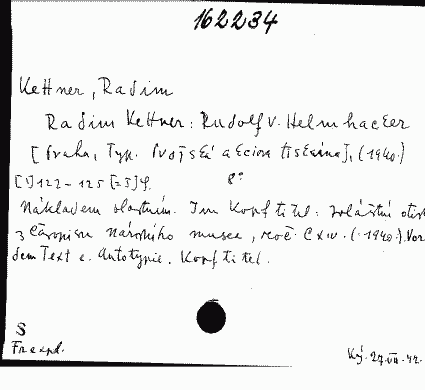 162234
Kettner, Radim
Radim Kettner: Rudolf v. Helmhacker
[Praha, Typ. Projská akciová tiskárna], (1940.)
[1]122-125[=5]4. 8°
Nákladem vlastním. Im Kopftitel: zvláštní otisk
z časopisu národního musea, roč. CXIV. (1940). Vor
dem Text e. Autotypie. Kopftitel.
S
Fr. expd.
Ký. 27.VII.42.